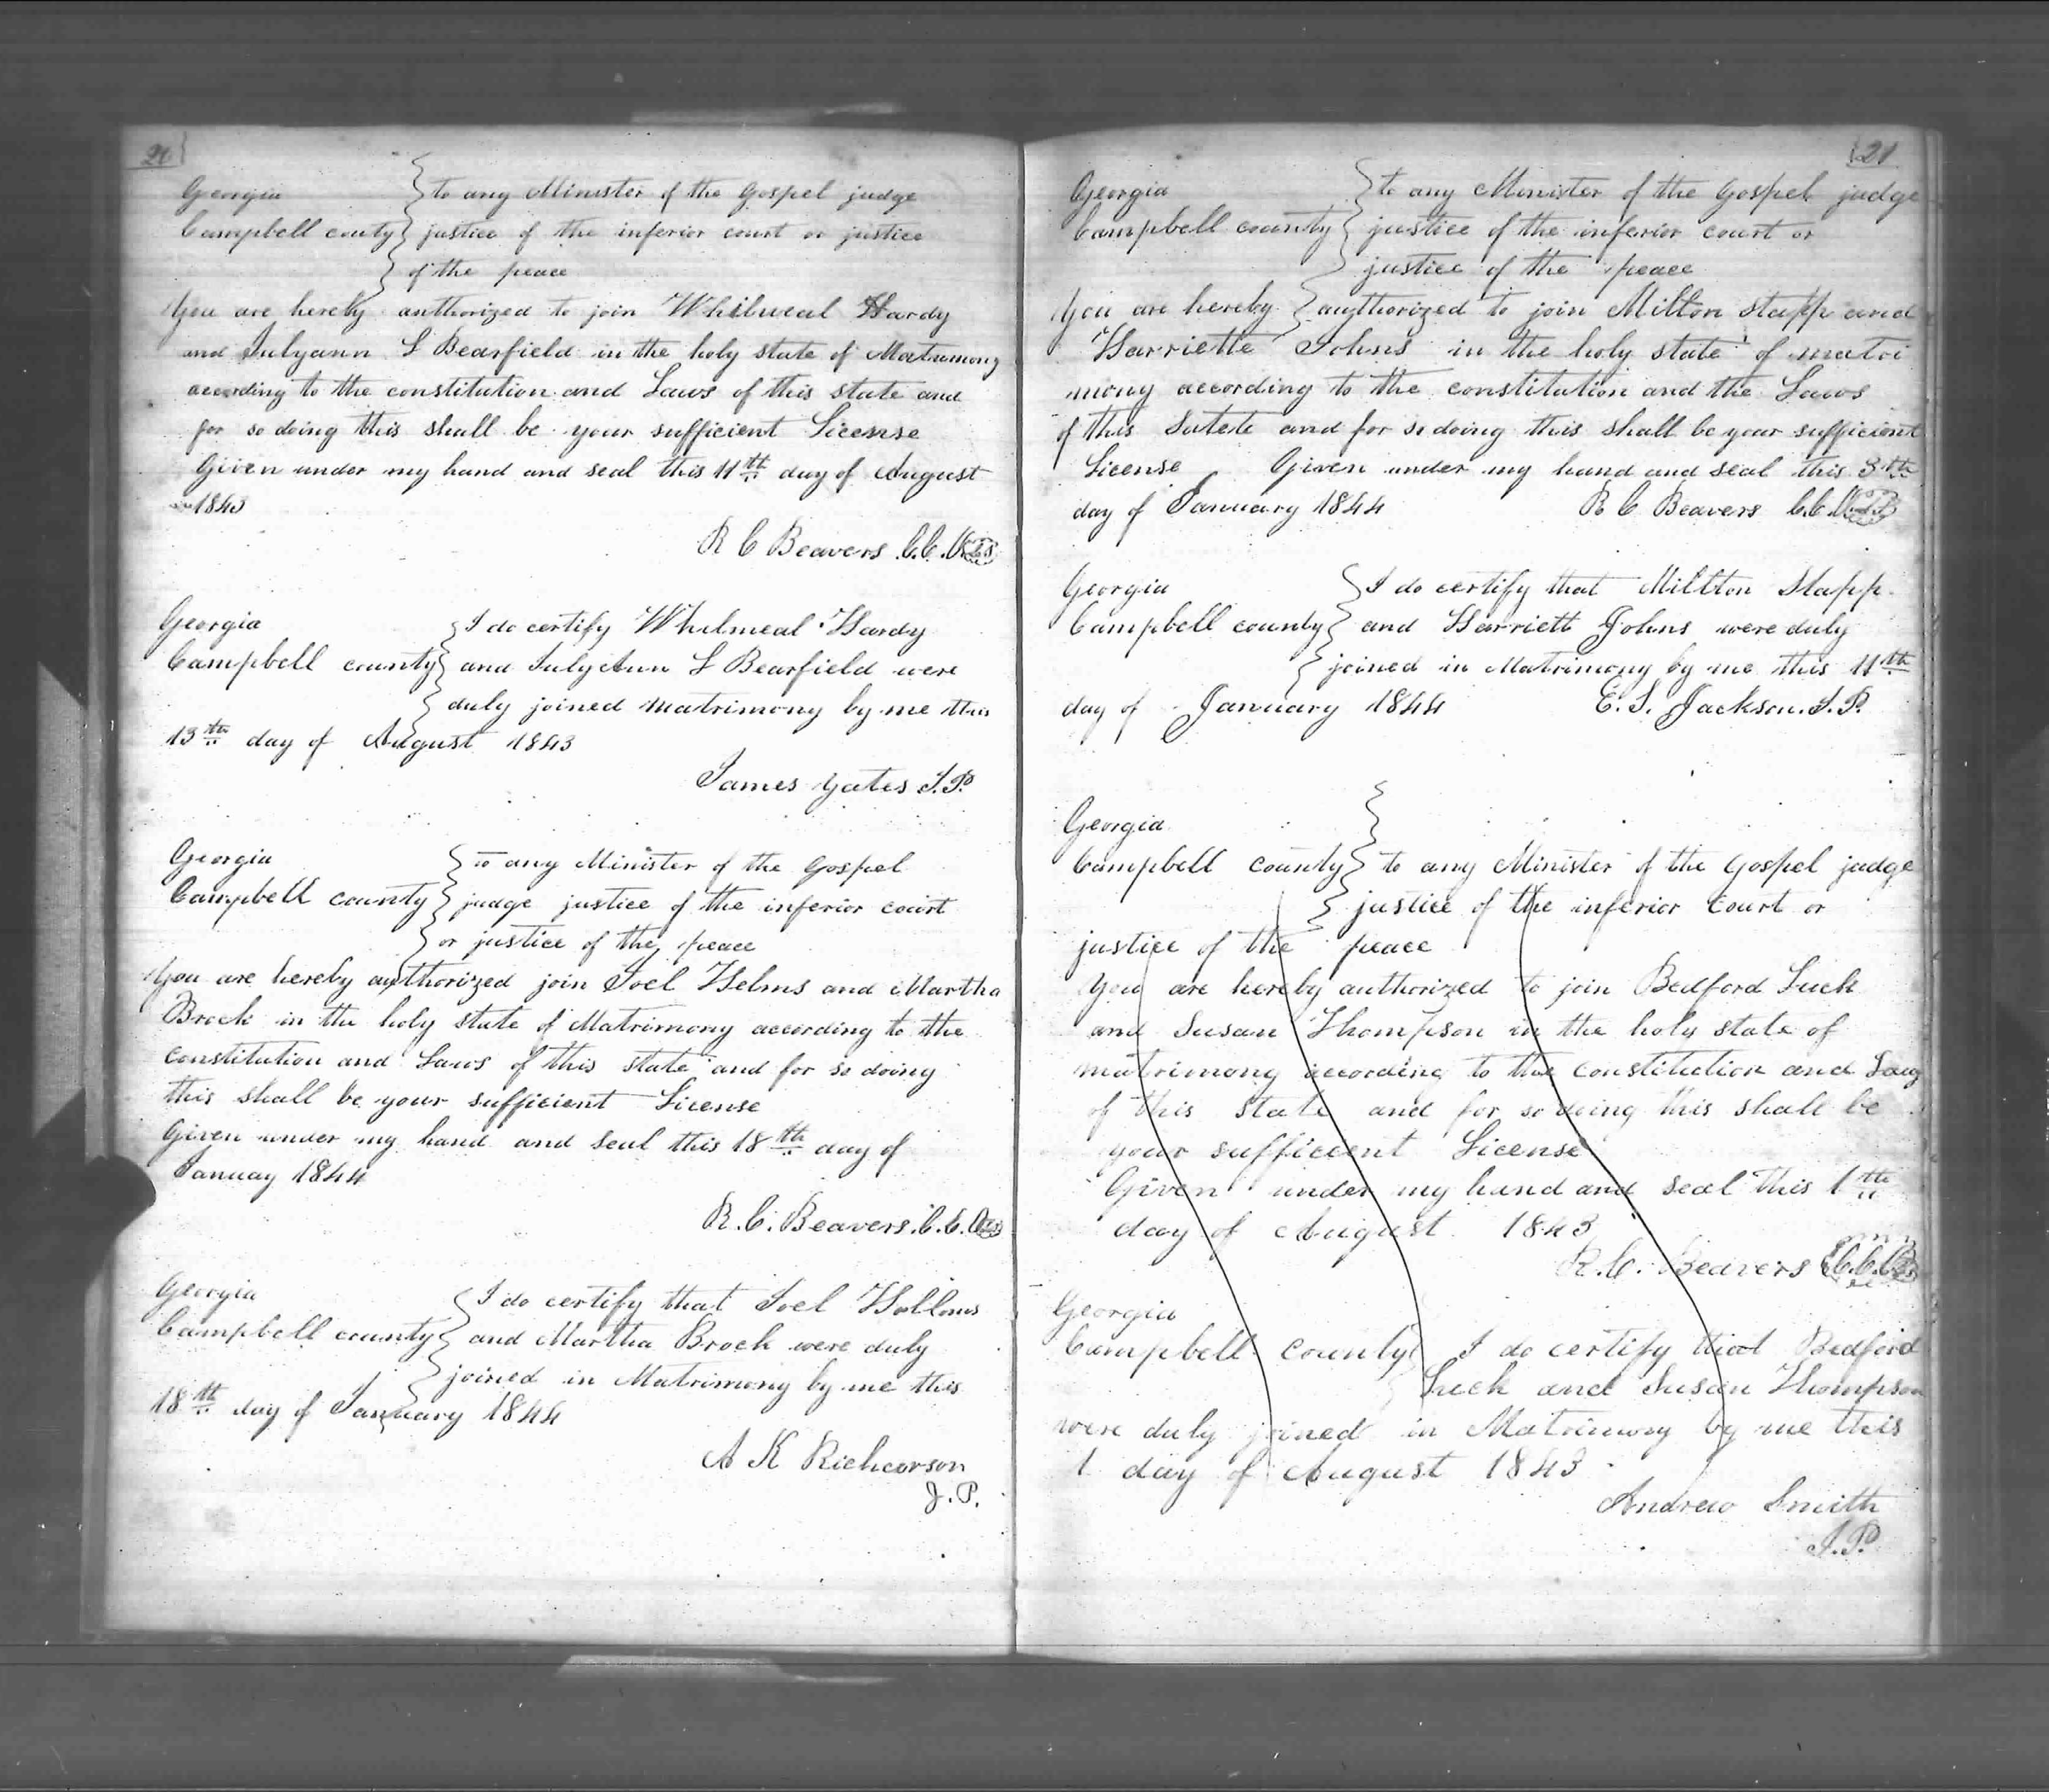 20
Georgia to any Minister of the Gospel judge
Campbell couty justice of the inferior court or justice
of the peace
You are hereby authorized to join Whilmeal Hardy
and Julyann L Bearfield in the holy state of Matrimony
according to the constitution and Laws of this state and
for so doing this shall be your sufficient License
Given under my hand and seal this 11th day of August
1843
R C Beavers C.C.O
Georgia I do certify Whilmeal Hardy
Campbell county and JulyAnn L Bearfield were
duly joined matrimony by me this
13th day of August 1843
James Yates J.P.
Georgia to any Minister of the Gospel
Campbell county judge justice of the inferior court
or justice of the peace
You are hereby authorized join Joel Helms and Martha
Brock in the holy state of Matrimony according to the
constitution and Laws of this state and for so doing
this shall be your sufficient License
Given under my hand and seal this 18th day of
Januay 1844
R. C. Beavers. C. C. O
Georgia I do certify that Joel Hellems
Campbell county and Martha Brock were duly
joined in Matrimony by me this
18th day of January 1844
A K Richerson
J. P.
21
Georgia to any Minister of the Gospel judge
Campbell county justice of the inferior court or
justice of the peace
You are hereby authorized to join Milton Stapp and
Harriette Johns in the holy state of matri
mony according to the constitution and the Laws
of this Satete and for so doing this shall be your sufficient
License Given under my hand and seal this 3th
day of January 1844 R C Beavers C.C.O
Georgia I do certify that Millton Stapp.
Campbell county and Harriett Johns were duly
joined in Matrimony by me this 11th
day of January 1844 E. S. Jackson. J. P.
Georgia
Campbell county to any Minister of the Gospel judge
justice of the inferior Court or
justice of the peace
You are hereby authorized to join Bedford Luck
and Susan Thompson in the holy state of
matrimony according to the constitution and Laws
of this state and for so doing this shall be
your sufficient License
Given under my hand and seal this 1th
day of August 1843
R. C. Beavers C.C.O
Georgia
Campbell county I do certify that Bedford
Luck and Susan Thompson
were duly joined in Matrimony by me this
1 day of August 1843
Andrew Smith
J. P.